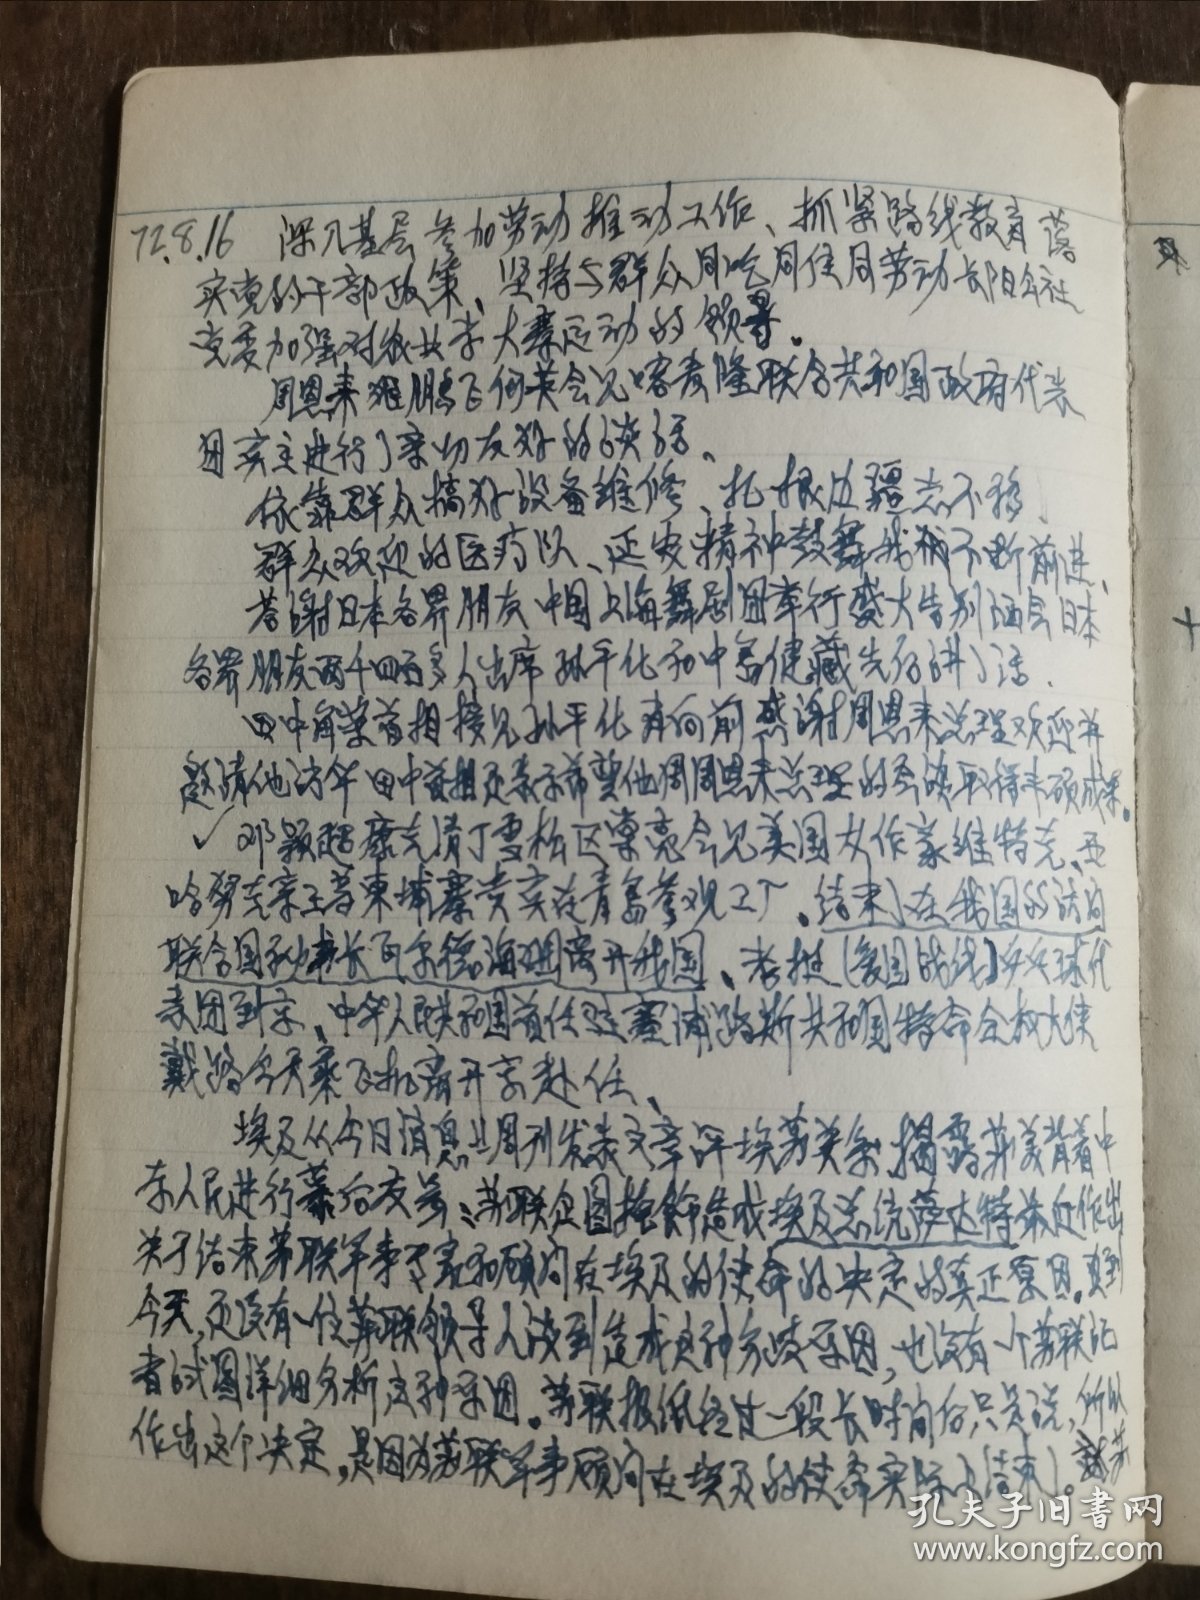 72.8.16 深入基层参加劳动推动工作、抓紧路线教育落
实党的干部政策、坚持与群众同吃同住同劳动 公社
党委加强对农业学大寨运动的领导。
周恩来姬鹏飞何英会见喀麦隆联合共和国政府代表
团 进行了亲切友好的谈话、
依靠群众搞好设备维修、扎根边疆志不移、
群众欢迎的医疗队、延安精神鼓舞我们不断前进、
答谢日本各界朋友中国上海舞剧团举行盛大告别酒会日本
各界朋友两千四百多人出席孙平化和中岛健藏先后讲了话.
田中角荣首相接见孙平化肖向前感谢周恩来总理欢迎并
邀请他访华田中首相还表示希望他同周恩来总理的会谈取得丰硕成果。
✓邓颖超康克清丁雪松区棠亮会见美国女作家维特克、西
哈努克亲王等柬埔寨贵宾在青岛参观工厂、结束了在我国的访问
联合国秘书长瓦尔德海姆离开我国、老挝(爱国战线)乒乓球代
表团到京、中华人民共和国首任驻塞浦路斯共和国特命全权大使
戴路今天乘飞机离开京赴任、
埃及《今日消息》周刊发表文章评埃苏关系,揭露苏美背着中
东人民进行幕后交易:苏联企图掩饰造成埃及总统萨达特最近作出
关于结束苏联军事专家和顾问在埃及的使命的决定的真正原因。直到
今天,还没有一位苏联领导人谈到造成这种分歧原因,也没有一个苏联记
者试图详细分析这种原因。苏联报纸经过一段长时间后只是说,所以
作出这个决定,是因为苏联军事顾问在埃及的使命实际上结束了。
孔夫子旧书网
www.kongfz.com